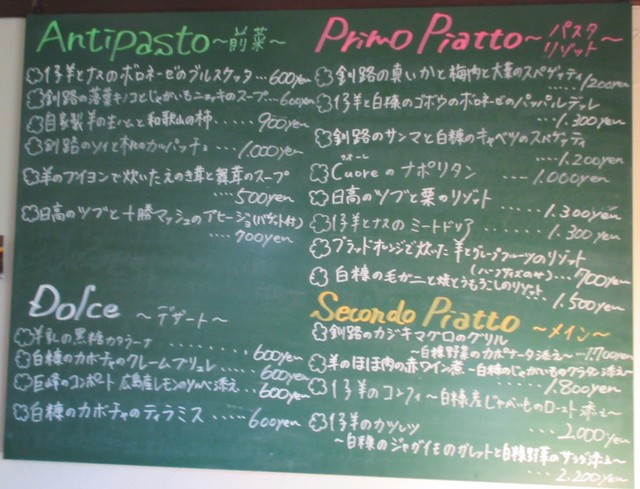 Antipasto ~前菜~
仔羊とナスのボロネーゼのブルスケッタ…600yen
釧路の落葉キノコとじゃがいもニョッキのスープ…600yen
自家製羊の生ハムと和歌山の柿……900yen
釧路のソイと桃のカルパッチョ……1,000yen
羊のブイヨンで炊いたえのき茸と舞茸のスープ
……500yen
日高のツブと十勝マッシュのアヒージョ(バゲット付)
……700yen
Dolce ~デザート~
羊乳の黒糖カタラーナ……600yen
白糠のカボチャのクレームブリュレ……600yen
巨峰のコンポート 広島産レモンのソルベ添え…600yen
白糠のカボチャのティラミス……600yen
Primo Piatto~パスタ
リゾット~
釧路の真いかと梅肉と大葉のスパゲッティ
…1,200yen
仔羊と白糠のゴボウのボロネーゼのパッパルデッレ
…1,300yen
釧路のサンマと白糠のキャベツのスパゲッティ
…1,200yen
クオーレ
Cuoreのナポリタン……1,000yen
日高のツブと栗のリゾット……1,300yen
仔羊とナスのミートドリア……1,300yen
ブラッドオレンジで炊いた羊とグレープフルーツのリゾット
(ハーフサイズのみ)…700yen
白糠の毛ガニと焼とうもろこしのリゾット……1,500yen
Secondo Piatto ~メイン~
釧路のカジキマグロのグリル
~白糠野菜のカポナータ添え~…1,700yen
羊のほほ肉の赤ワイン煮~白糠のじゃがいものグラタン添え~
……1,800yen
仔羊のコンフィ~白糠産じゃがいものロースト添え~
……2,000yen
仔羊のカツレツ
~白糠のジャガイモのガレットと白糠野菜のサラダ添え~
…2,200yen